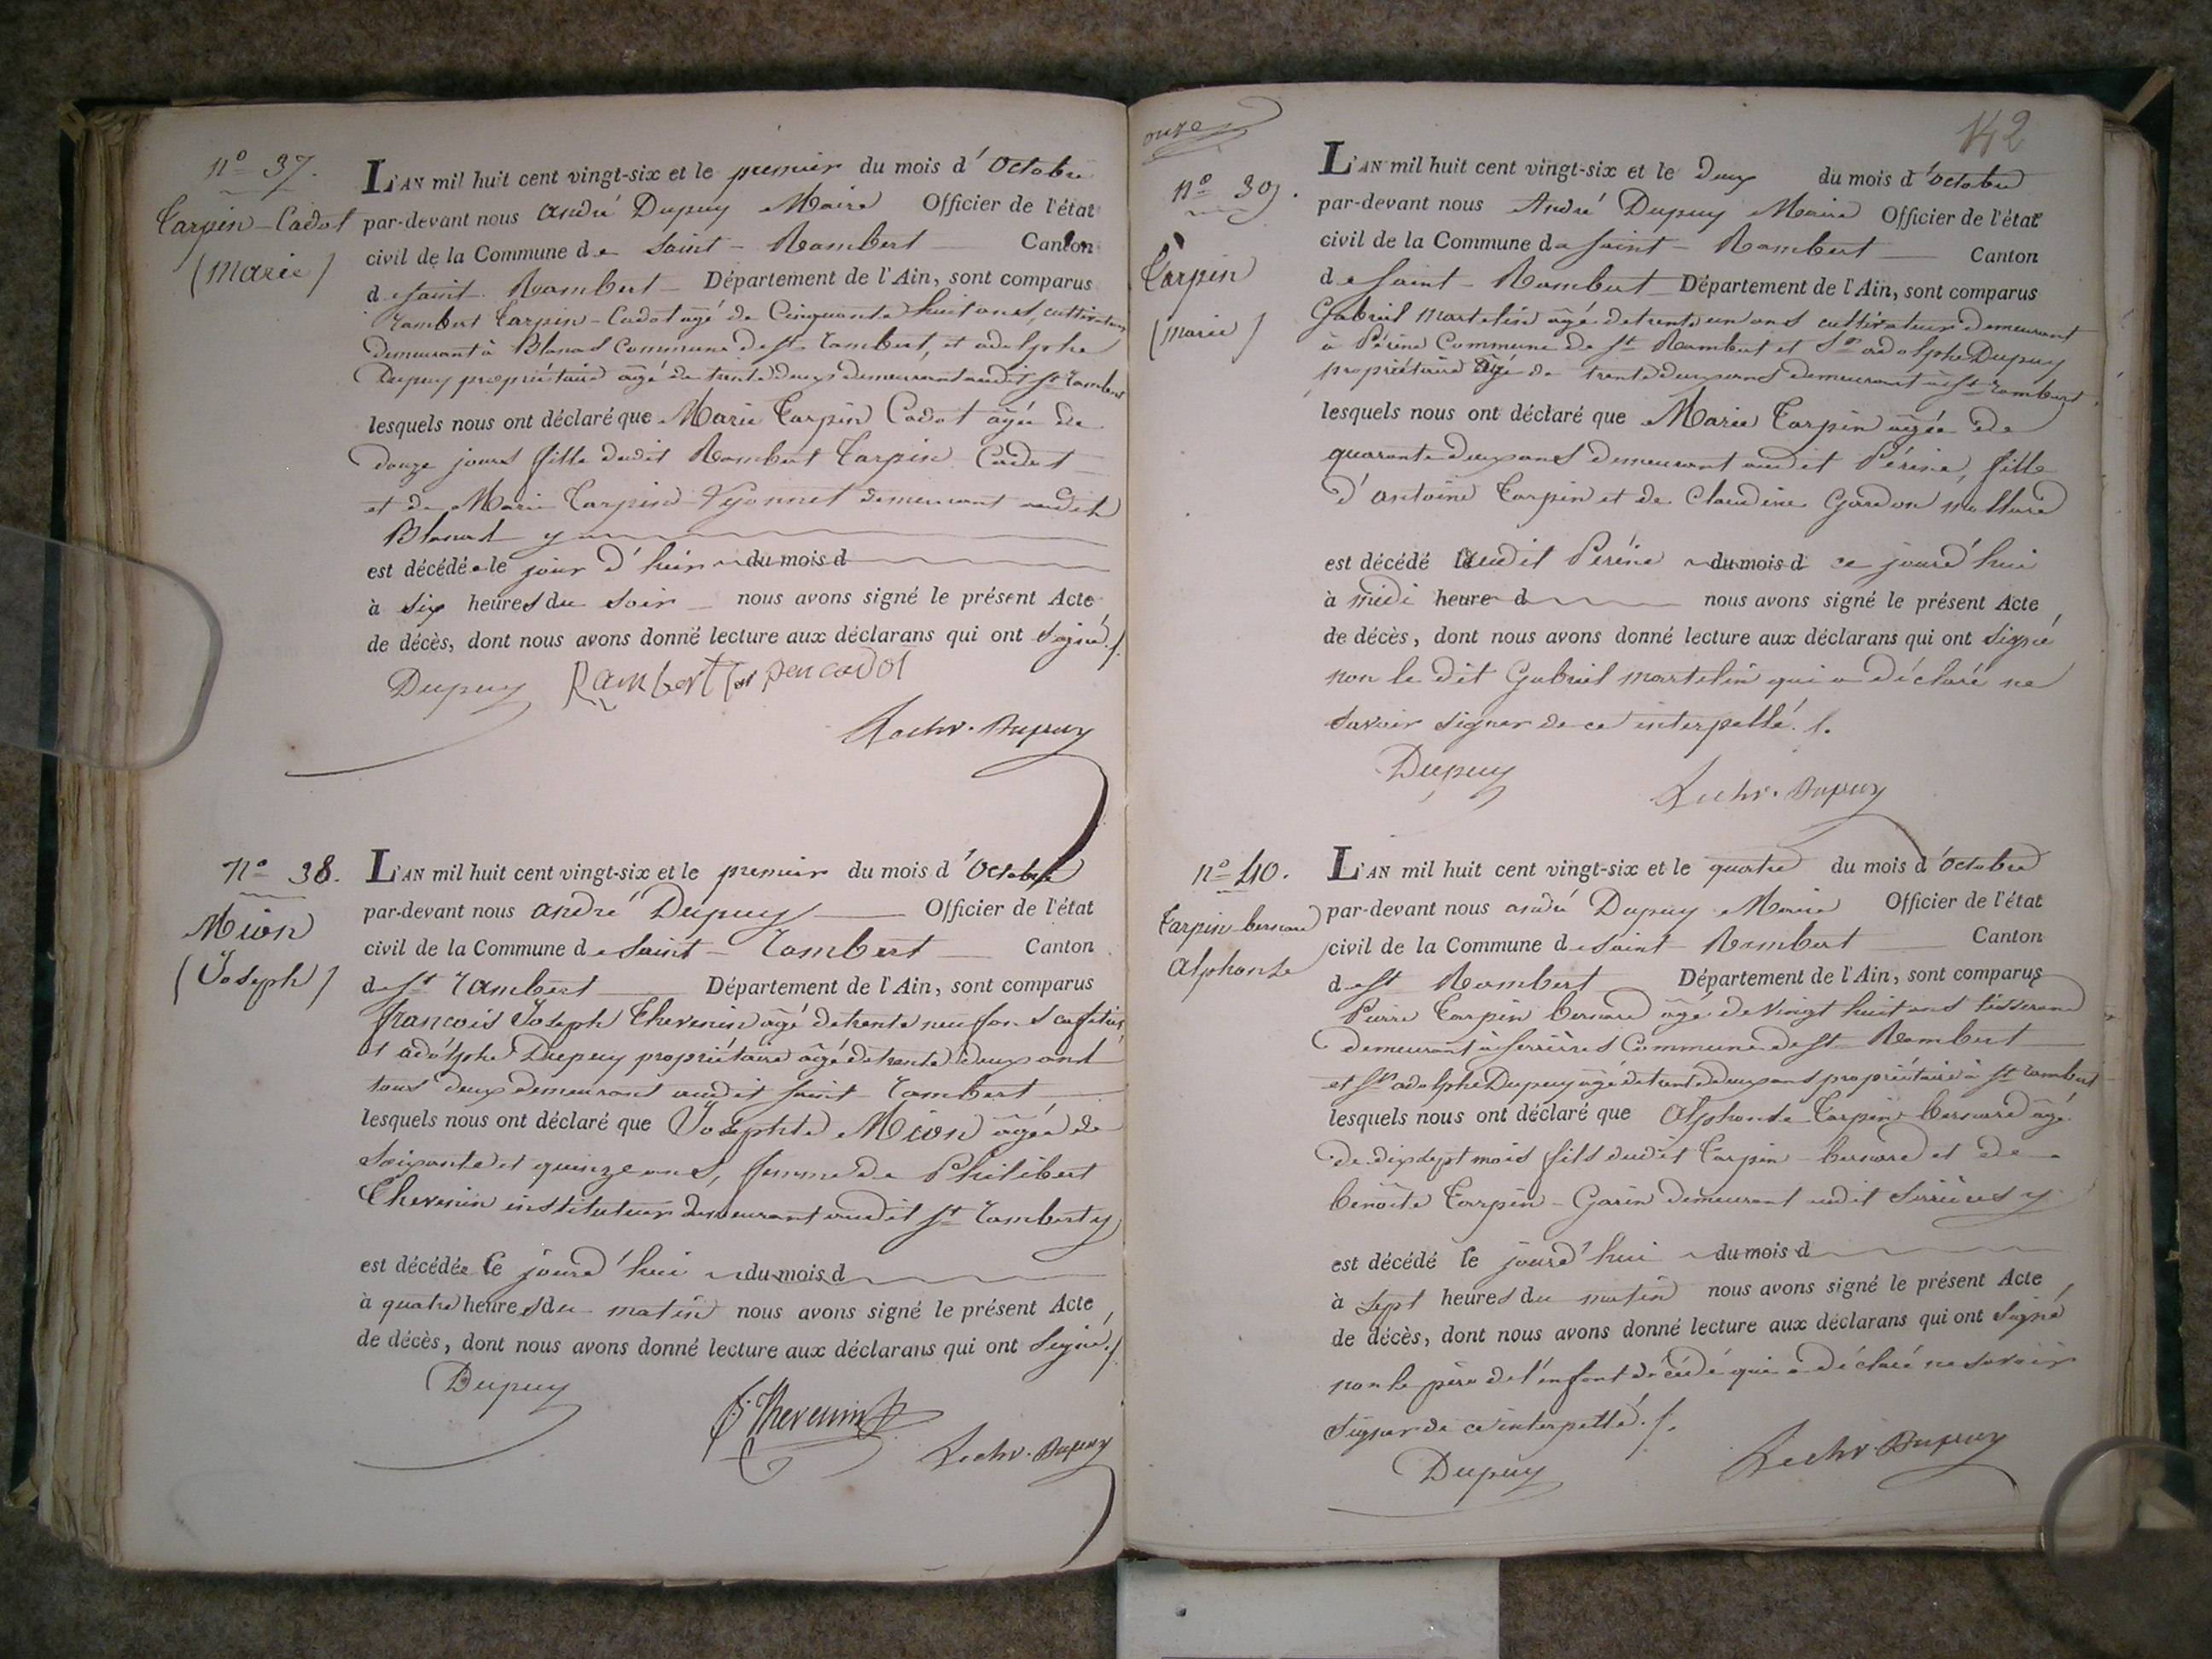 nº 37.
Carpin-Cadot
(Marie)
L'AN mil huit cent vingt-six et le premier du mois d'Octobre
par-devant nous André Dupuy Maire Officier de l'état
civil de la Commune de Saint-Rambert Canton
de Saint-Rambert Département de l'Ain, sont comparus
Rambert Carpin-Cadot âgé de Cinquante huit ans, cultivateur
demeurant à Blanas Commune de St Rambert, et adolphe
Dupuy propriétaire âgé de trente deux demeurant audit St Rambert
lesquels nous ont déclaré que Marie Carpin Cadot âgée de
douze jours fille dudit Rambert Carpin Cadot
et de Marie Carpin-Vyonnet demeurant audit
Blanas y
est décédée le jour d'hier du mois d
à six heures du soir nous avons signé le présent Acte
de décès, dont nous avons donné lecture aux déclarans qui ont signé ./.
Dupuy Rambert Carpen cadot
Dupuy
nº 38.
Mion
(Joseph)
L'AN mil huit cent vingt-six et le premier du mois d'Octobre
par-devant nous andré Dupuy Officier de l'état
civil de la Commune de Saint-Rambert Canton
de St Rambert Département de l'Ain, sont comparus
françois Joseph Thevenin âgé de trente neuf ans cafetier
et adolphe Dupuy propriétaire âgé de trente deux ans
tous deux demeurans audit Saint-Rambert
lesquels nous ont déclaré que Josephte Mion âgée de
soixante et quinze ans, femme de Philibert
Thevenin instituteur demeurant audit St Rambert y
est décédée ce jourd'hui du mois d
à quatre heures du matin nous avons signé le présent Acte
de décès, dont nous avons donné lecture aux déclarans qui ont signé ./.
Dupuy
Thevenin
Dupuy
142
nº 39.
Carpin
(marie)
L'AN mil huit cent vingt-six et le deux du mois d'octobre
par-devant nous André Dupuy Maire Officier de l'état
civil de la Commune de Saint-Rambert Canton
de Saint-Rambert Département de l'Ain, sont comparus
Gabriel Martelin âgé de trente un ans cultivateur demeurant
à Périne Commune de St Rambert et Sr adolphe Dupuy
propriétaire âgé de trente deux ans demeurant à St Rambert,
lesquels nous ont déclaré que Marie Carpin âgée de
quarante deux ans demeurant audit Périne, fille
d'antoine Carpin et de Claudine Gardon
est décédé audit Périne du mois d ce jourd'hui
à midi heure d nous avons signé le présent Acte
de décès, dont nous avons donné lecture aux déclarans qui ont signé
non le dit Gabriel martelin qui a déclaré ne
savoir signer de ce interpellé ./.
Dupuy
Dupuy
nº 40.
Carpin-bernard
Alphonse
L'AN mil huit cent vingt-six et le quatre du mois d'octobre
par-devant nous andré Dupuy Maire Officier de l'état
civil de la Commune de Saint-Rambert Canton
de St Rambert Département de l'Ain, sont comparus
Pierre Carpin bernard âgé de vingt huit ans tisserand
demeurant à Serrières Commune de St Rambert
et Sr adolphe Dupuy âgé de trente deux ans propriétaire à St Rambert
lesquels nous ont déclaré que Alphonse Carpin bernard âgé
de dix sept mois fils dudit Carpin-bernard et de
benoite Carpin-Garin demeurant audit Serrières y
est décédé ce jourd'hui du mois d
à sept heures du matin nous avons signé le présent Acte
de décès, dont nous avons donné lecture aux déclarans qui ont signé
non le père de l'enfant décédé qui a déclaré ne savoir
signer de ce interpellé ./.
Dupuy
Dupuy